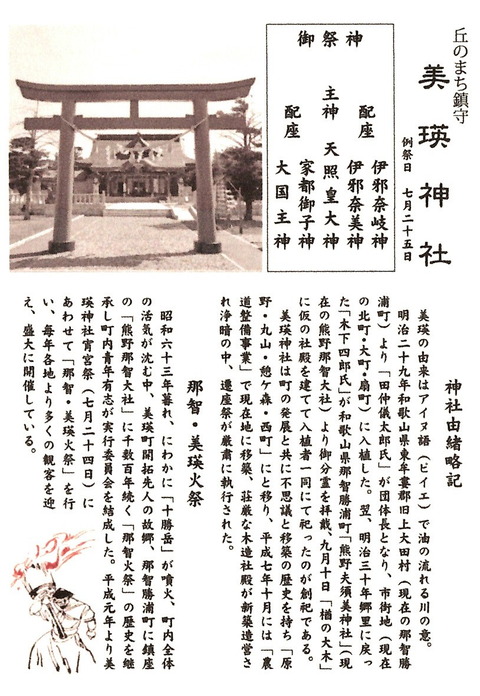 丘のまち鎮守
美瑛神社
例祭日 七月二十五日
御祭神
配座 伊邪奈岐神
伊邪奈美神
主神 天照皇大神
配座 家都御子神
大国主神
神社由緒略記
美瑛の由来はアイヌ語(ピイエ)で油の流れる川の意。
明治二十九年和歌山県東牟婁郡旧上大田村(現在の那智勝
浦町)より「田仲儀太郎氏」が団体長となり、市街地(現在
の北町・大町・扇町)に入植した。翌、明治三十年郷里に戻っ
た「木下四郎氏」が和歌山県那智勝浦町「熊野夫須美神社」(現
在の熊野那智大社)より御分霊を拝戴、九月十日「楢の大木」
に仮の社殿を建てて入植者一同にて祀ったのが創祀である。
美瑛神社は町の発展と共に不思議と移築の歴史を持ち「原
野・丸山・憩ケ森・西町」にと移り、平成七年十月には「農
道整備事業」で現在地に移築、荘厳な木造社殿が新築造営さ
れ浄暗の中、遷座祭が厳粛に執行された。
那智・美瑛火祭
昭和六十三年暮れ、にわかに「十勝岳」が噴火、町内全体
の活気が沈む中、美瑛町開拓先人の故郷、那智勝浦町に鎮座
の「熊野那智大社」に千数百年続く「那智火祭」の歴史を継
承し町内青年有志が実行委員会を結成した。平成元年より美
瑛神社宵宮祭(七月二十四日)に
あわせて「那智・美瑛火祭」を行
い、毎年各地より多くの観客を迎
え、盛大に開催している。